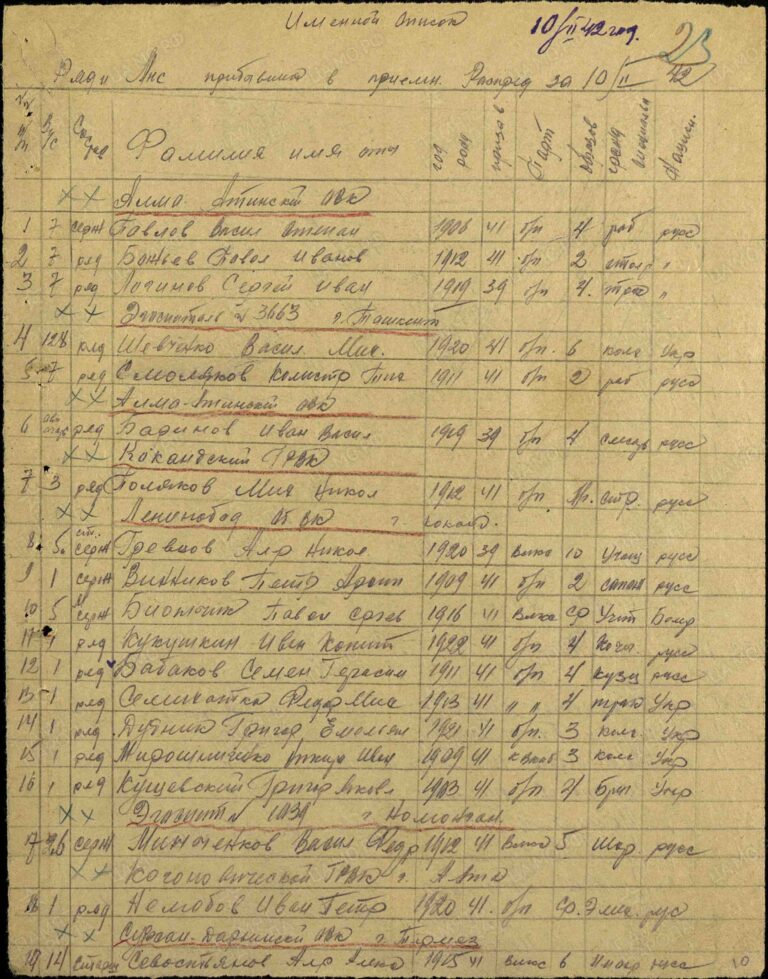 Именной список 10/II 42 год. 23
Ряд и Мнс прибывших в приемн. Распред за 10/II 42
№№ п/п ВУС Состав Фамилия имя отч год рожд призв Парт Образов гражд специальн Национ.
×× Алма-Атинский ОВК
1 7 серж Павлов Васил Степан 1906 41 б/п 4 раб русс
2 7 ряд Бажьев Павел Иванов 1912 41 б/п 2 столр "
3 7 ряд Логинов Сергей Иван 1919 39 б/п 4 "
×× Эвгоспиталь № 3663 г. Ташкент
4 128 ряд Шевченко Васил. Мих. 1920 41 б/п. 6 колх Укр
5 7 ряд Смоляков Калистр 1911 41 б/п 2 раб русс
×× Алма-Атинский ОВК
6 ряд Бадинов Иван Васил 1919 39 б/п 4 слесарь русс
×× Кокандский ГРВК
7 3 ряд Поляков Мих Никол 1912 41 б/п русс
×× Ленинабад ОВК г. Коканд.
8 5. ст. серж Гревцов Алр Никол 1920 39 Влкс 10 Учащ русс
9 1 серж Винников Петр 1909 41 б/п 2 сапож русс
10 5 серж Павел Сргев 1916 41 Влкс Ср Учит
11 1 ряд Кукушкин Иван 1922 41 б/п 4 русс
12 1 ряд Бабаков Семен Герасим 1911 41 б/п 4 кузн русс
13 1 ряд Семихатка Федр Мих 1913 41 " " 4 тракт Укр
14 1 ряд Дубник Григор Емельян 1921 41 б/п. 3 колх Укр
15 1 ряд Мирошниченко Иван 1909 41 3 колх Укр
16 1 ряд Кущевский Григор Яковл 1903 41 б/п 4 Бриг Укр
×× Эвгоспит № 1039 г. Наманган
17 26 серж Минченков Васил Федр 1912 41 Влкс 5 Шоф. русс
×× ГРВК г.
18 1 ряд Немобов Иван Петр 1920 41. б/п Ср. рус
×× Сурхан-Дарьинский ОВК г. Термез
19 14 старш Севостьянов Алр Алекс 1915 41 влкс 6 русс 10